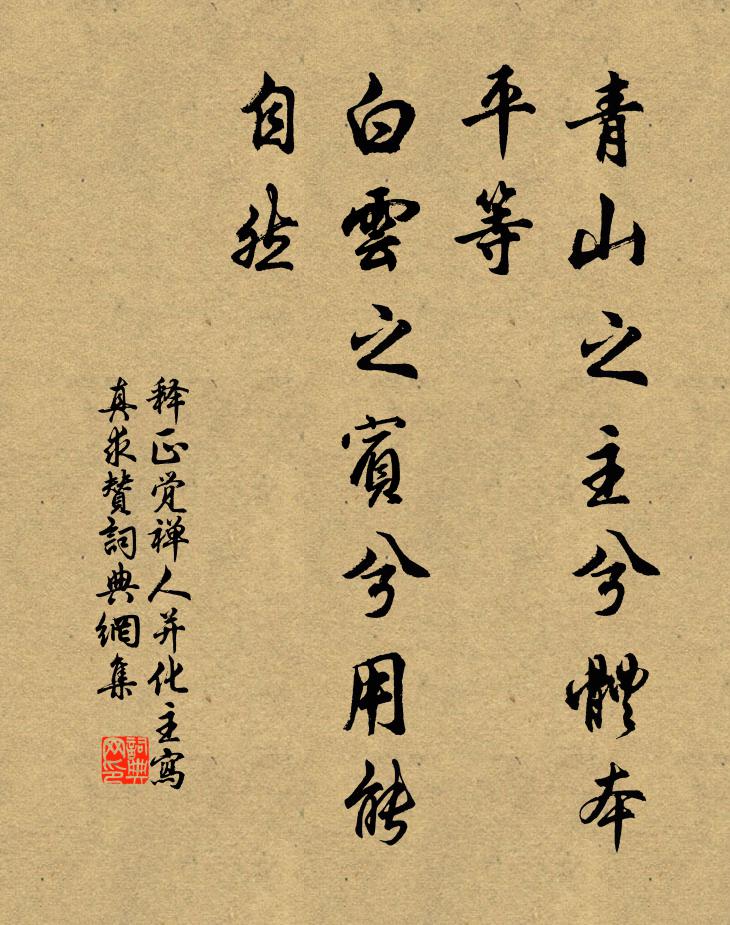 青山之主兮體本
平等
白雲之賓兮用能
自然
释正觉禅人并化主寫
真求贊詞典網集
詞典
网印